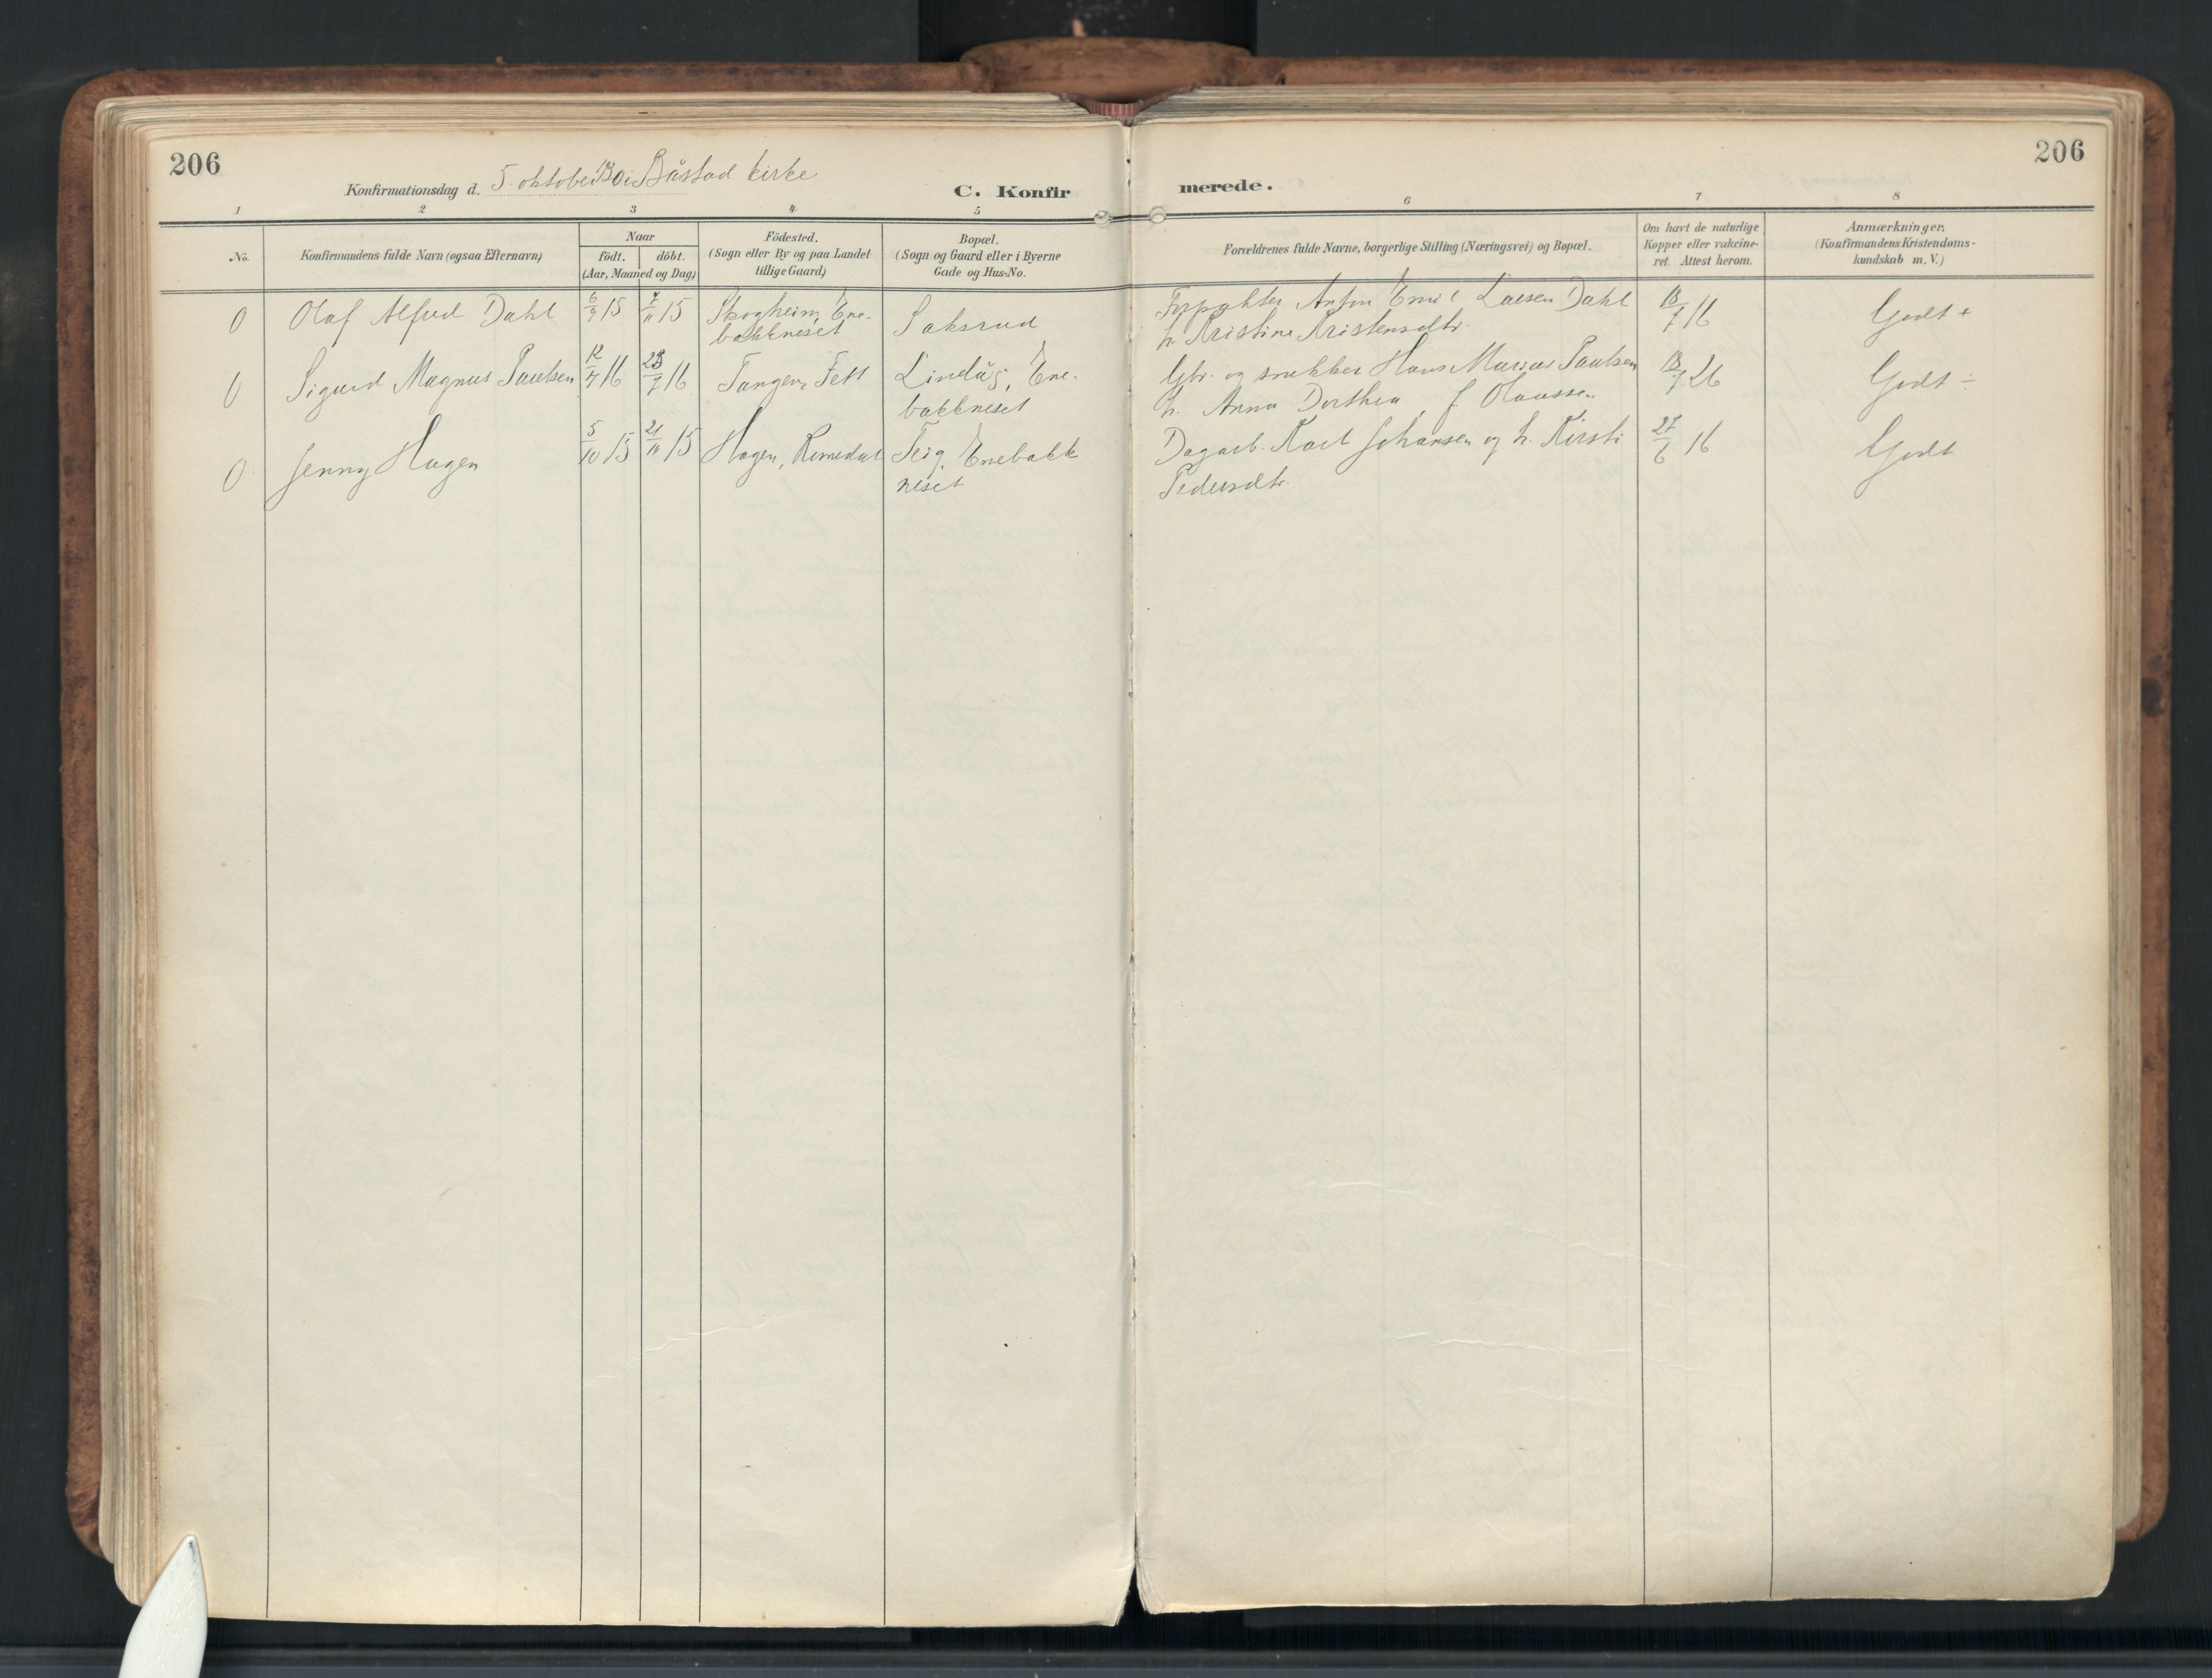 206
206
Konfirmationsdag d. 5. oktober 30 i Båstad kirke
C. Konfirmerede.
1 2 3 4 5 6 7 8
No.
Konfirmandens fulde Navn (ogsaa Efternavn)
Naar
födt. döbt.
(Aar, Maaned og Dag)
Födested.
(Sogn eller By og paa Landet
tillige Gaard)
Bopæl.
(Sogn og Gaard eller i Byerne
Gade og Hus-No.
Forældrenes fulde Navne, borgerlige Stilling (Næringsvei) og Bopæl.
Om havt de naturlige
Kopper eller vakcine-
ret. Attest herom.
Anmærkninger.
(Konfirmandens Kristendoms-
kundskab m. V.)
0 Olaf Alfred Dahl 6/9 15 7/11 15 Skogheim, Ene- Saksrud Forpakter Anton Emil Larsen Dahl 13/7 16 Godt +
bakkneset h. Kristine Kristensdtr.
0 Sigurd Magnus Paulsen 12/4 16 23/7 16 Tangen, Fett Lindås, Ene- Gbr. og snekker Hans Marius Paulsen 13/7 26 Godt ÷
bakkneset h. Anna Dorthea f. Olaussen
0 Jenny Hagen 5/10 15 21/11 15 Hagen, Romedal Teig, Enebakk Dagarb. Karl Johansen og h. Kirsti 27/6 16 Godt
neset Pedersdtr.